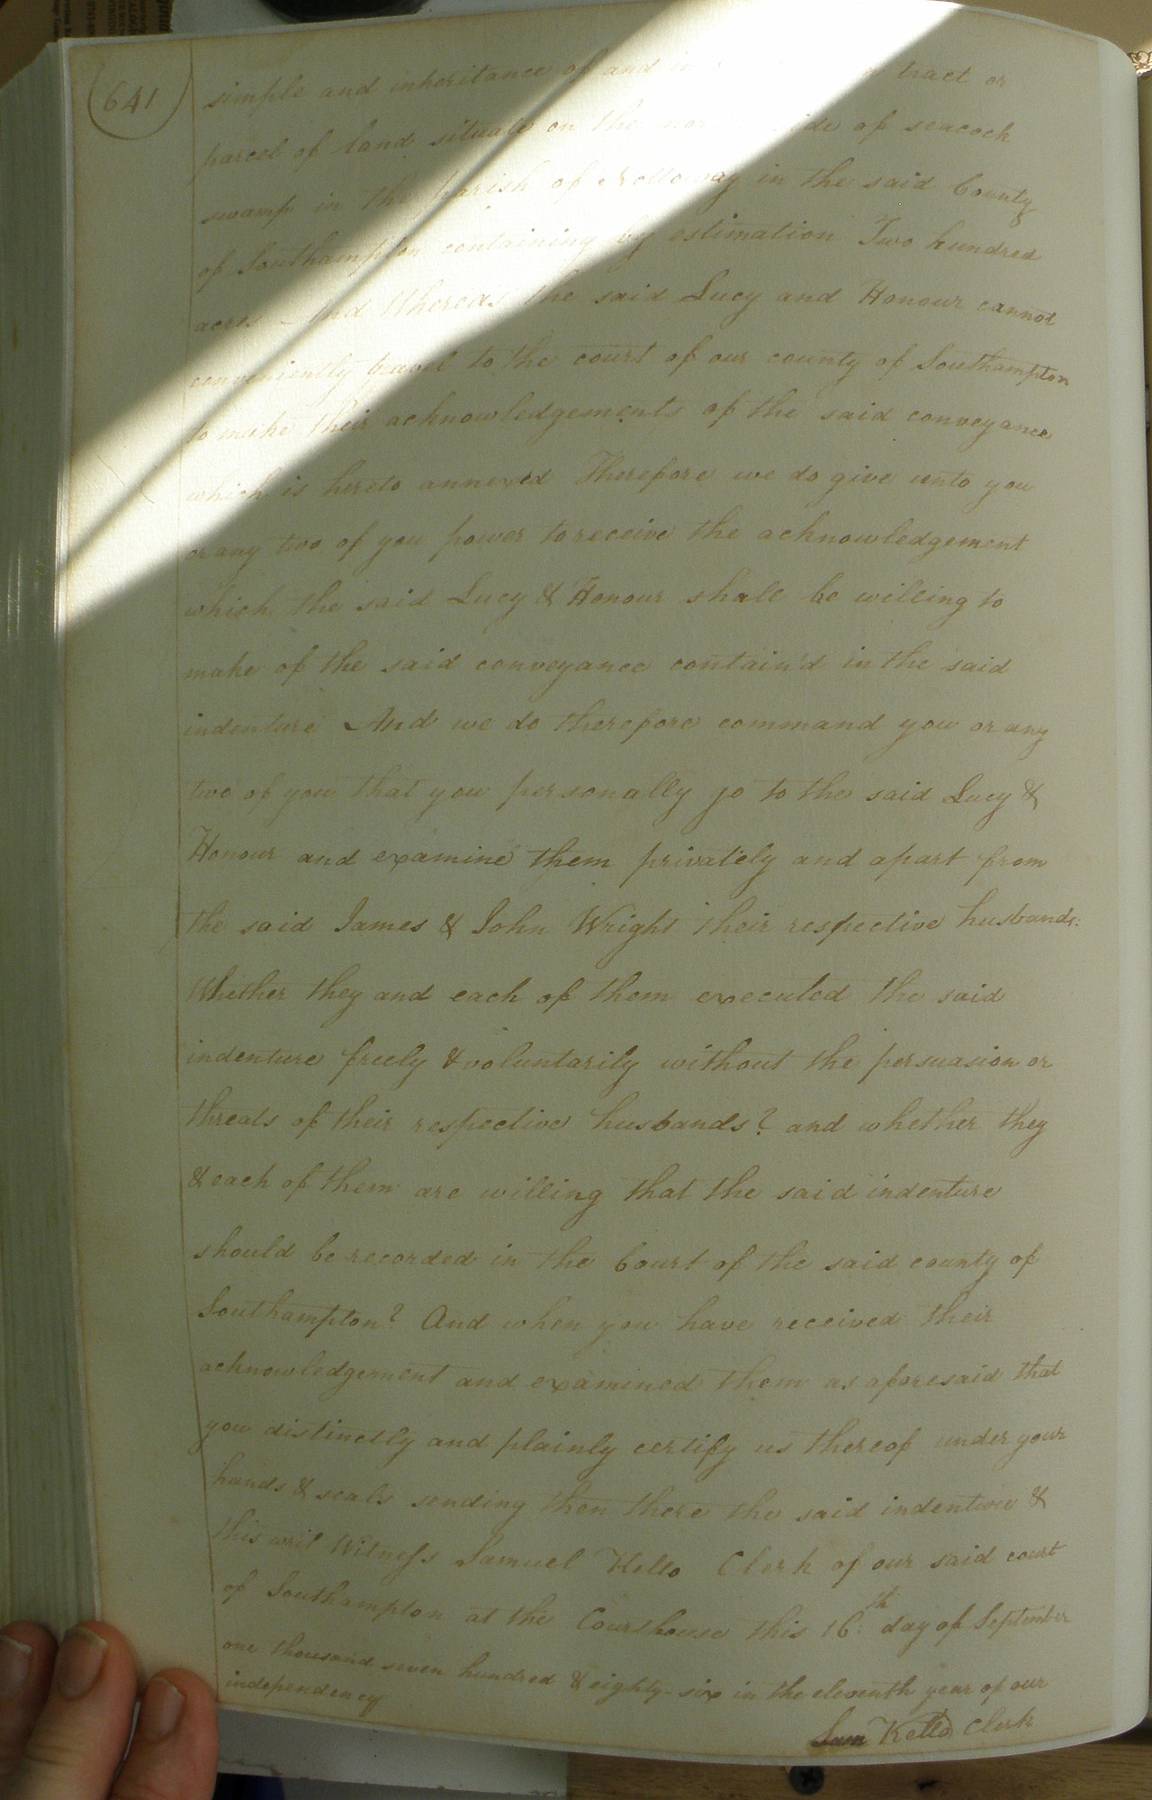 641
simple and inheritance of and in tract or
parcel of land situate on the side of seacock
swamp in the parish of in the said County
of Southampton containing by estimation Two hundred
acres And Whereas the said Lucy and Honour cannot
conveniently travel to the court of our county of Southampton
to make their acknowledgements of the said conveyance
which is hereto annexed Therefore we do give unto you
or any two of you power to receive the acknowledgement
which the said Lucy & Honour shall be willing to
make of the said conveyance contain'd in the said
indenture And we do therefore command you or any
two of you that you personally go to the said Lucy &
Honour and examine them privately and apart from
the said James & John Wright their respective husbands:
Whether they and each of them executed the said
indenture freely & voluntarily without the persuasion or
threats of their respective husbands? and whether they
& each of them are willing that the said indenture
should be recorded in the Court of the said county of
Southampton? And when you have received their
acknowledgement and examined them as aforesaid that
you distinctly and plainly certify us thereof under your
hands & seals sending then there the said indenture &
this writ Witness Samuel Kello Clerk of our said court
of Southampton at the Courthouse this 16th day of September
one thousand seven hundred & eighty-six in the eleventh year of our
independency
Sam Kello Clerk